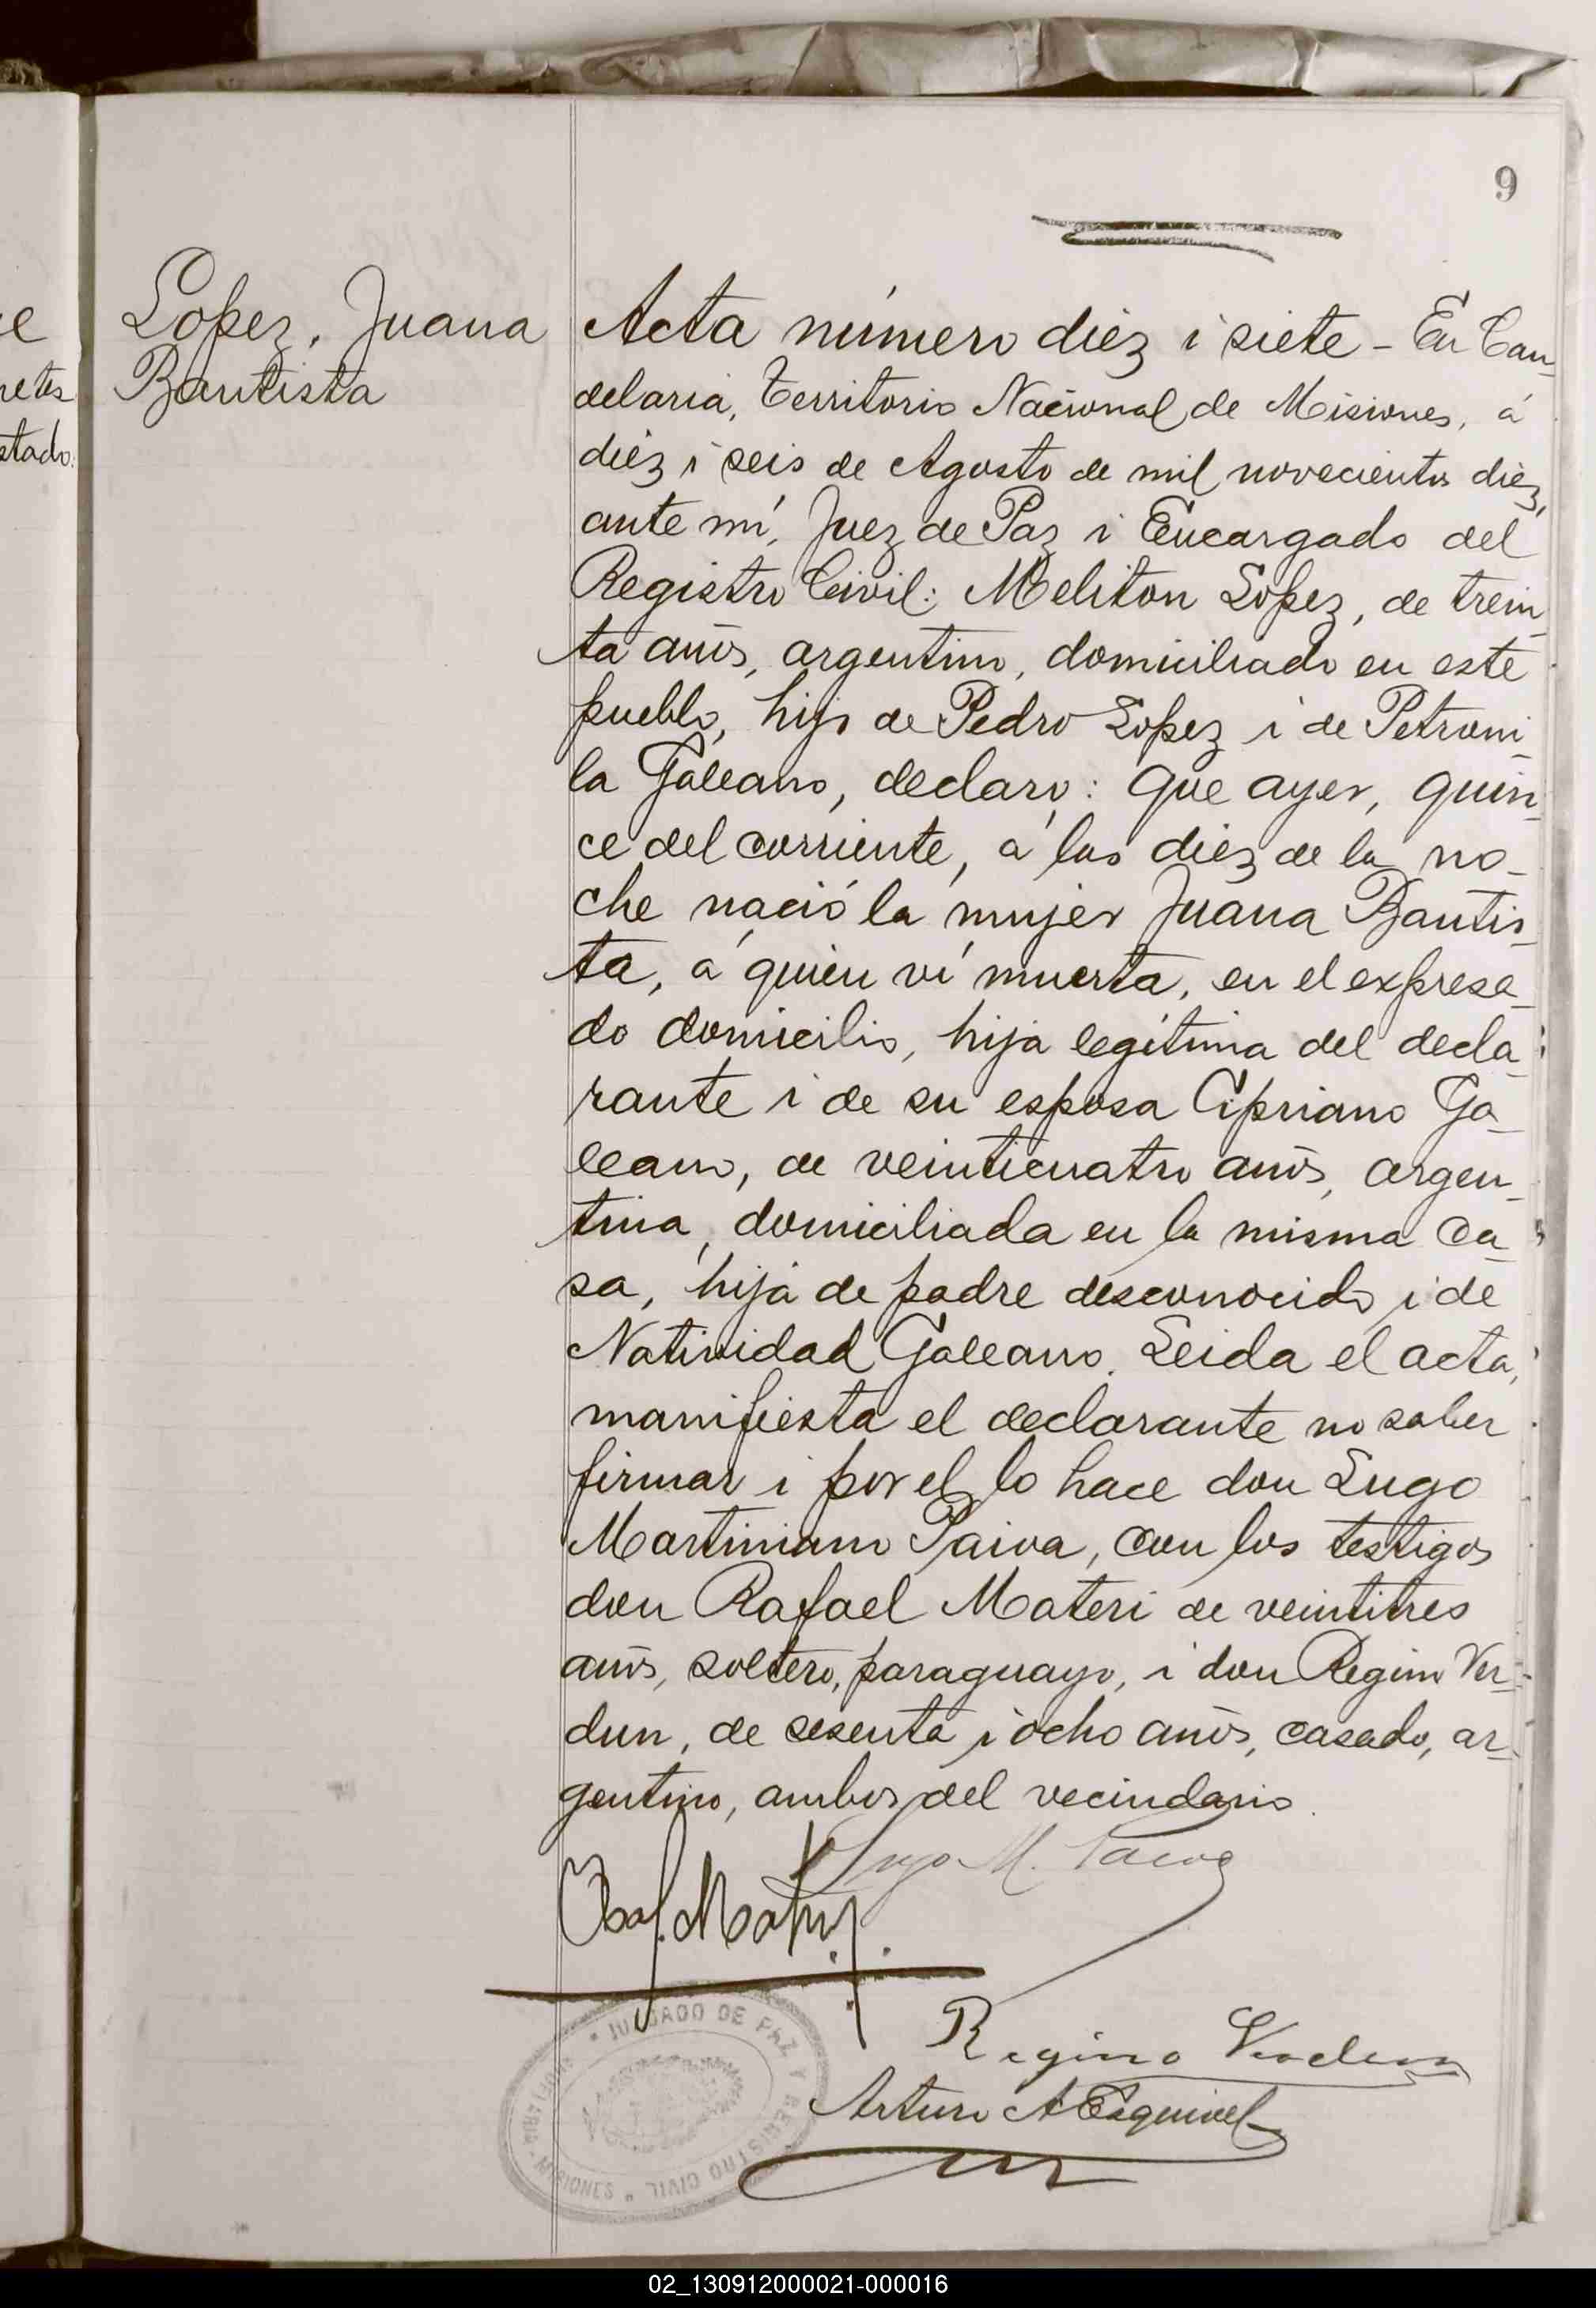 9
Lopez, Juana
Bautista
Acta número diéz i siete - En Can_
delaria, Territorio Nacional de Misiones, á
diéz i seis de Agosto de mil novecientos diéz,
ante mí, Juez de Paz i Encargado del
Registro Civil: Meliton Lopez, de trein_
ta años, argentino, domiciliado en este
pueblo, hijo de Pedro Lopez i de Petroni_
la Galeano, declaró: Que ayer, quin_
ce del corriente, á las diéz de la no_
che nació la mujer Juana Bautis_
ta, á quien ví muerta, en el expresa_
do domicilio, hija legítima del decla_
rante i de su esposa Cipriano Ga_
leano, de veinticuatro años, argen_
tina, domiciliada en la misma ca_
sa, hija de padre desconocido i de
Natividad Galeano. Leida el acta,
manifiesta el declarante no saber
firmar i por el lo hace don Lugo
Martiniano Paiva, con los testigos
don Rafael Materi de veintitres
años, soltero, paraguayo, i don Regino Ver_
dun, de sesenta i ocho años, casado, ar_
gentino, ambos del vecindario.
Lugo M. Paiva
Raf. Materi
Regino Verdun
Arturo A Esquivel
JUZGADO DE PAZ Y REGISTRO CIVIL * MISIONES
re
retes
stado.
02_130912000021-000016